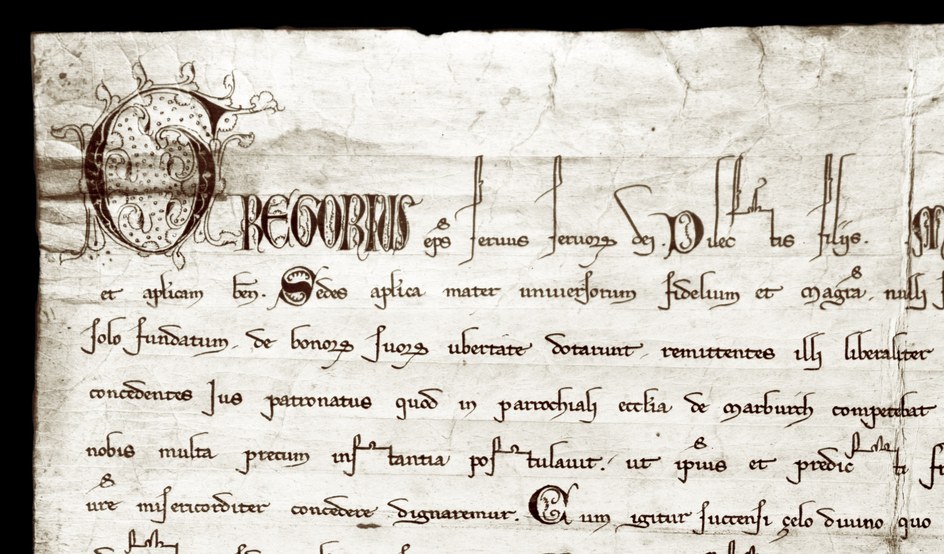 GREGORIUS ep̄s seruus seruoꝝ dei. Dilectis filijs.
et aplicam ben. Sedes aplica mater uniuersorum fidelium et magr̄a. nulli
solo fundatum. de bonoꝝ suoꝝ ubertate dotarunt. remittentes illi liberaliter
concedentes Jus patronatus quod in parrochiali ecclia de Marburch competebat
nobis multa precum instantia postulauit. ut ipius et predicti
ure misericorditer concedere dignaremur. Cum igitur succensi çelo diuino quo